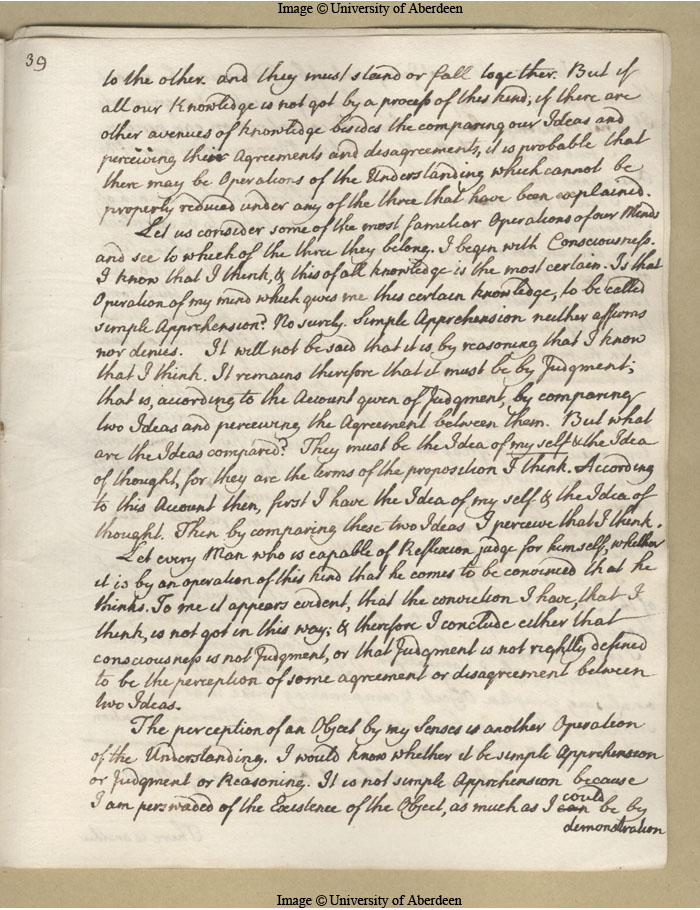 Image © University of Aberdeen
39
to the other. and they must stand or fall together. But if
all our Knowledge is not got by a process of this kind; if there are
other avenues of knowledge besides the comparing our Ideas and
perceiving their Agreements and disagreements, it is probable that
there may be Operations of the Understanding which cannot be
properly reduced under any of the three that have been explained.
Let us consider some of the most familiar Operations of our Minds
and see to which of the three they belong. I begin with Consciousness.
I know that I think, & this of all knowledge is the most certain. Is that
Operation of my mind which gives me this certain knowledge, to be called
simple Apprehension? No surely. Simple Apprehension neither affirms
nor denies. It will not be said that it is by reasoning that I know
that I think. It remains therefore that it must be by Judgment;
that is, according to the Account given of Judgment, by comparing
two Ideas and perceiving the Agreement between them. But what
are the Ideas compared? They must be the Idea of my self & the Idea
of thought, for they are the terms of the proposition I think. According
to this Account then, first I have the Idea of my self & the Idea of
thought. Then by comparing these two Ideas I perceive that I think.
Let every Man who is capable of Reflexion judge for himself, whether
it is by an operation of this kind that he comes to be convinced that he
thinks. To me it appears evident, that the conviction I have, that I
think, is not got in this way; & therefore I conclude either that
consciousness is not Judgment, or that Judgment is not rightly defined
to be the perception of some agreement or disagreement between
two Ideas.
The perception of an Object by my Senses is another Operation
of the Understanding. I would know whether it be simple Apprehension
or Judgment or Reasoning. It is not simple Apprehension because
I am perswaded of the Existence of the Object, as much as I can could be by
demonstration
Image © University of Aberdeen